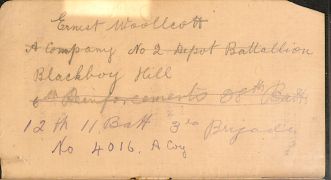 Ernest Woollcott
A Company No 2 Depot Battallion
Blackboy Hill
6th Reinforcements 28th Batt
12th 11 Batt 3rd Brigade
No 4016. A Coy